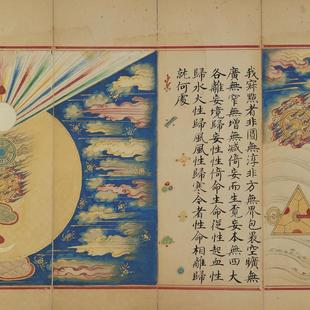 我寂點者非圓無淳非方無界包裹空曠無
廣無窄無增無減倚妄而生覔妄本無四大
各離妄境歸妄性性倚命生命從性起血性
歸水火性歸風風性歸寒令者性命相離歸
就何處